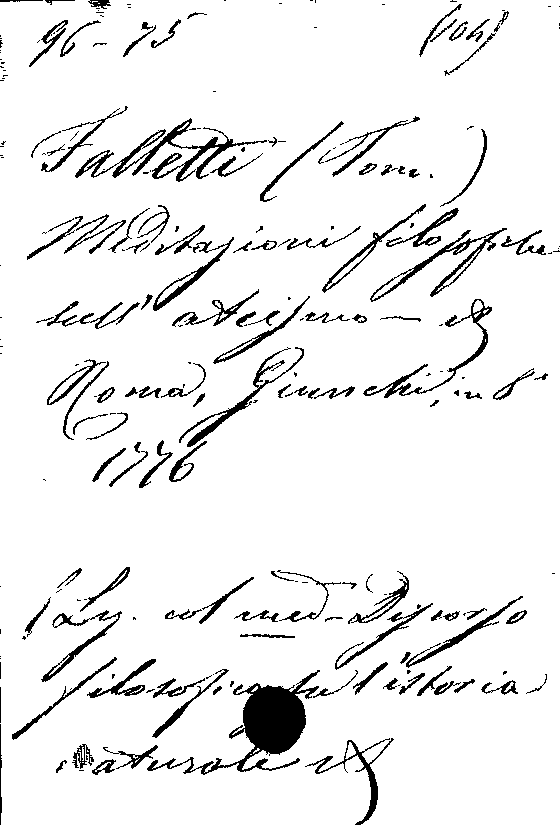 96-75 (104)
Falletti (Tom.)
Meditazioni filosofiche
sull' ateismo — &
Roma, Giunchi, in 8°
1776
(Lg. col med- Discorso
filosofico su l'istoria
naturale &